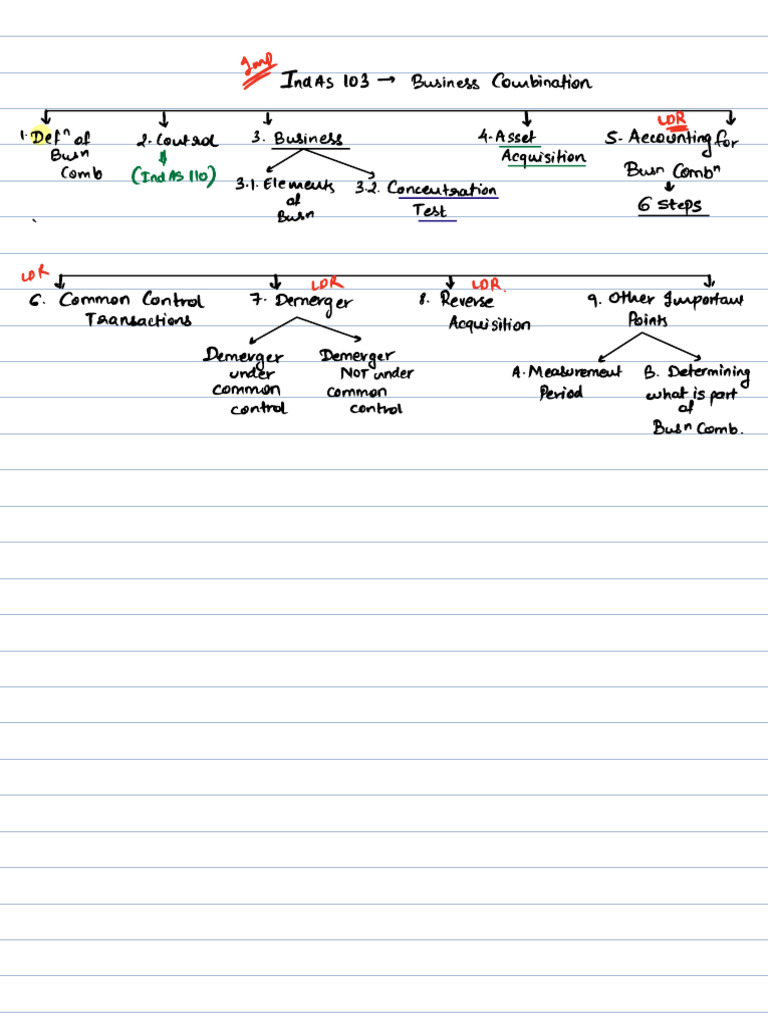 Imp
Ind AS 103 → Business Combination
1. Defⁿ of Busⁿ Comb
2. Control
(Ind AS 110)
3. Business
3.1. Elements of Busⁿ
3.2. Concentration Test
4. Asset Acquisition
LDR
5. Accounting for Busⁿ Combⁿ
6 Steps
LDR
6. Common Control Transactions
LDR
7. Demerger
Demerger under common control
Demerger NOT under common control
LDR.
8. Reverse Acquisition
9. Other Important Points
A. Measurement Period
B. Determining what is part of Busⁿ Comb.